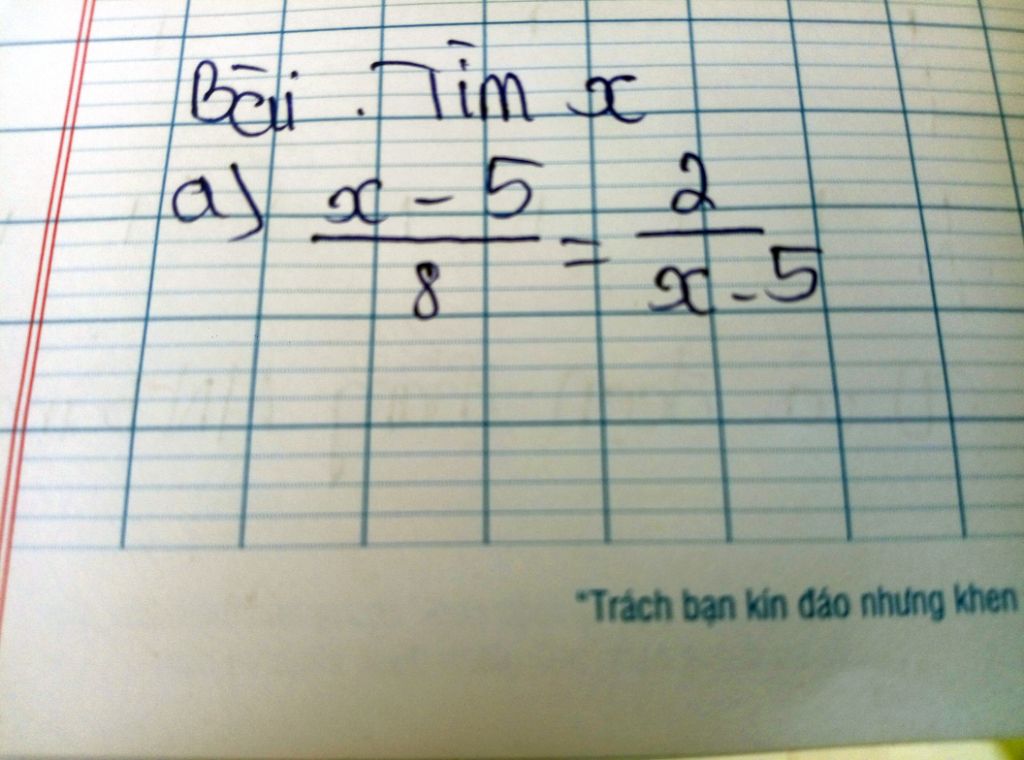 Bài. Tìm x
a) x - 5 / 8 = 2 / x - 5
"Trách bạn kín đáo nhưng khen